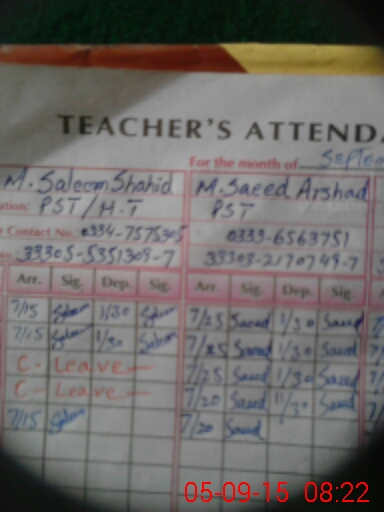 TEACHER'S ATTENDA
For the month of Septem
M. Saleem Shahid M. Saeed Arshad
ation: PST / H.T PST
Contact No. 0334-7575305 0333-6563751
No: 33305-5351309-7 33303-2170749-7
Arr. Sig. Dep. Sig. Arr. Sig. Dep. Sig. A
7/15 Saleem 1/30 Saleem 7/25 Saeed 1/30 Saeed
7/15 Saleem 1/30 Saleem 7/25 Saeed 1/30 Saeed
C - Leave — 7/25 Saeed 1/30 Saeed
C - Leave — 7/20 Saeed 11/30 Saeed
7/15 Saleem 7/20 Saeed
05-09-15 08:22